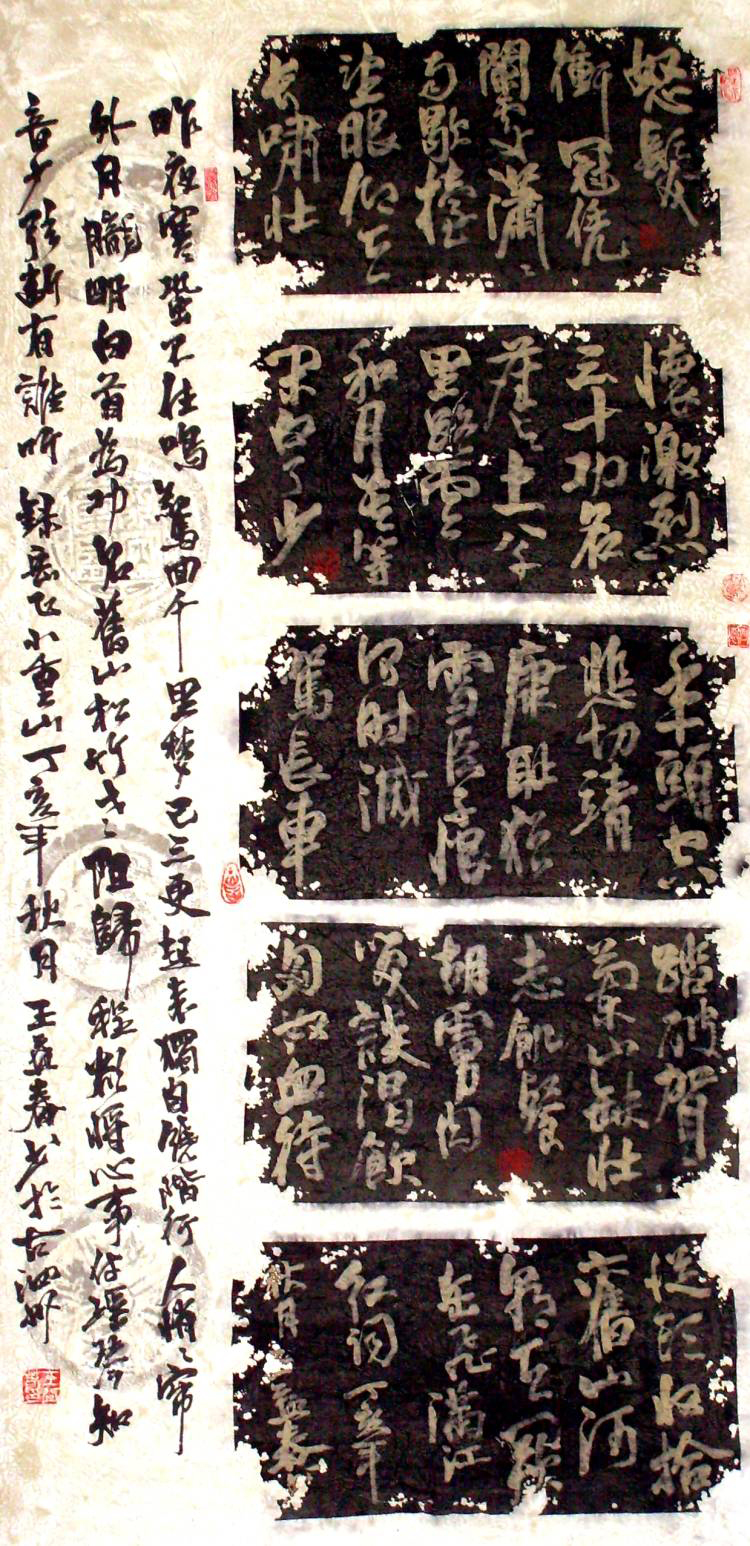 怒髮
衝冠凭
闌處潇〻
雨歇擡
望眼仰天
长嘯壮
懷激烈
三十功名
塵与土八千
里路雲
和月莫等
闲白了少
年頭空
悲切靖
康耻猶
雪臣子恨
何时滅
駕長車
踏破賀
蘭山缺壮
志飢餐
胡虜肉
笑談渴飲
匈奴血待
從头收拾
舊山河
朝天闕
岳飛滿江
红词丁亥年
秋月益春
昨夜寒蛩不住鳴驚回千里梦已三更起来獨自繞階行人悄〻帘
外月朧明白首為功名舊山松竹老阻歸程欲将心事付瑶琴知
音少弦断有誰听録岳飞小重山丁亥年秋月王益春书於古泗州